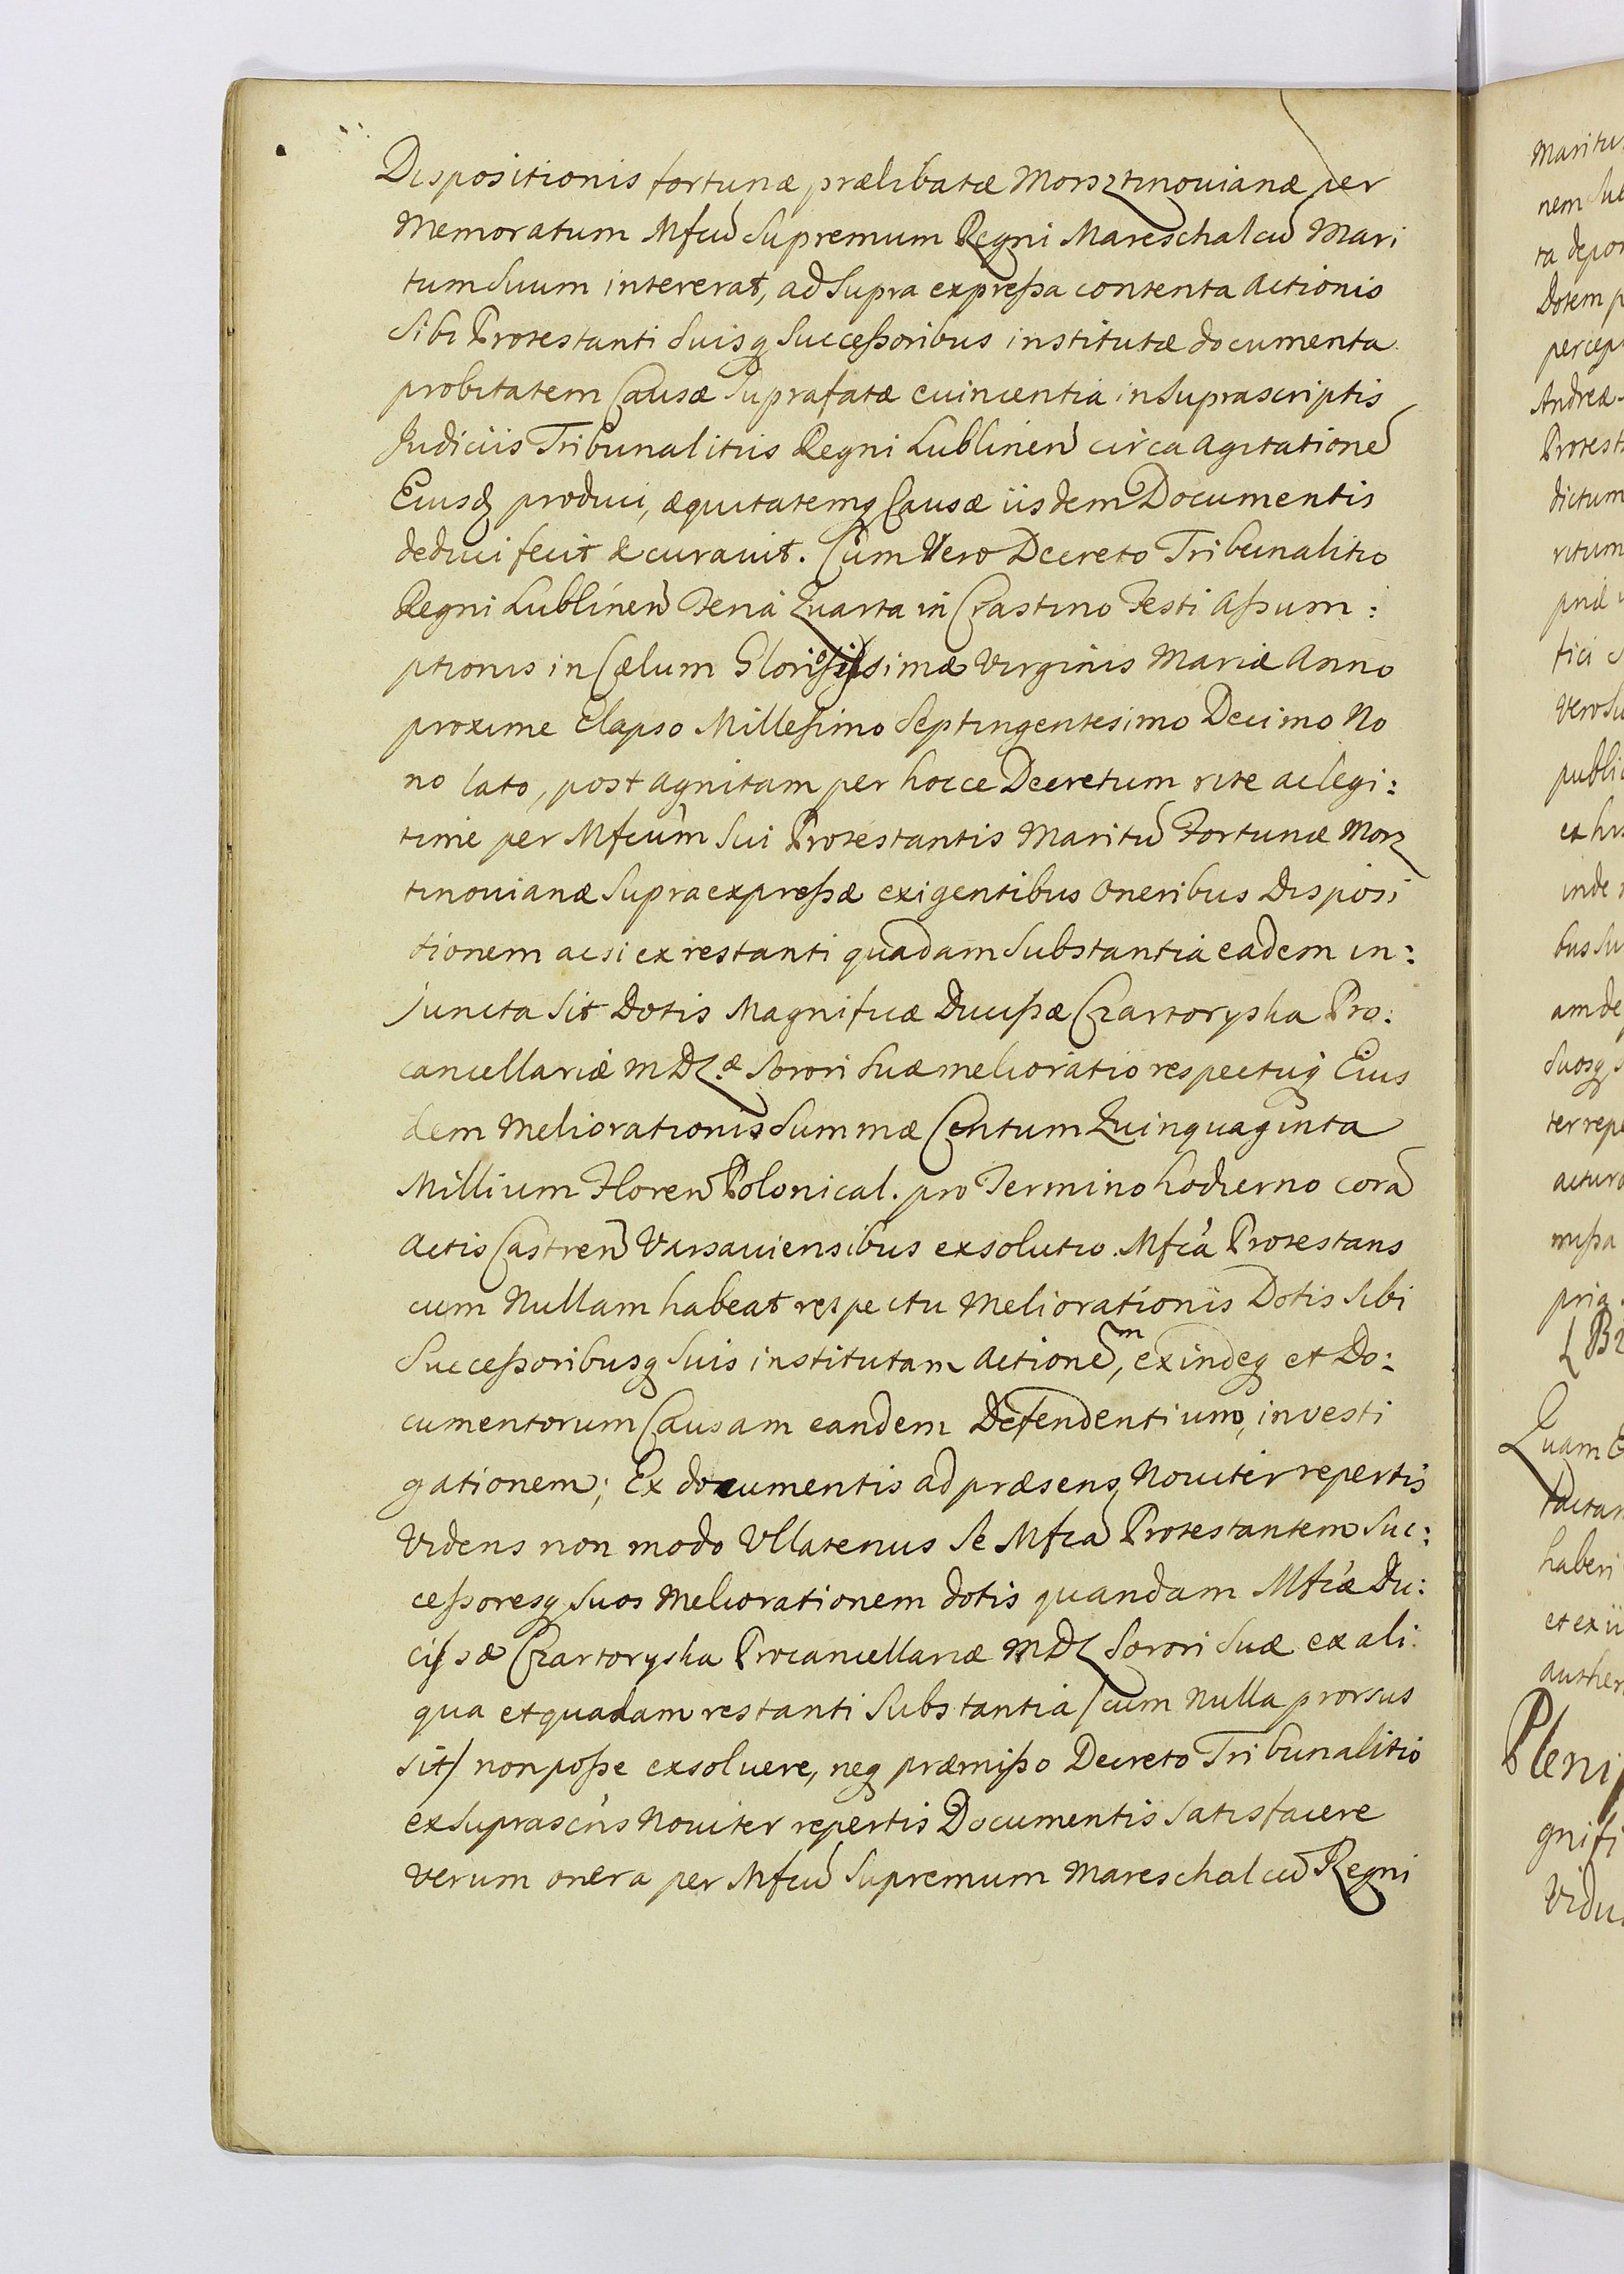 Dispositionis fortunæ prælibatæ Morsztinovianæ per
Memoratum Mfcũ Supremum Regni Mareschalcũ Mari
tum Suum intererat, ad Supra expreßa contenta Actionis
Sibi Protestanti Suisq Succeßoribus institutæ documenta
probitatem Causæ Suprafatæ evincentia in Suprascriptis
Judiciis Tribunalitiis Regni Lublinen̄ circa Agitationẽ
Eiusd produci, æquitatemq Causæ iisdem Documentis
deduci fecit & curavit. Cum Vero Decreto Tribunalitio
Regni Lublinen̄ Feriá Quarta in Crastino Festi Aßum:
ptionis in Cælum Gloriosißimæ Virginis Mariæ Anno
proxime Elapso Milleßimo Septingentesimo Decimo No
no lato, post agnitam per hocce Decretum rite ac legi:
time per Mfcum̃ Sui Protestantis Maritũ Fortunæ Morz
tinovianæ Supraexpreßæ exigentibus Oneribus Disposi
tionem ac si ex restanti quadam Substantia eadem in:
juncta Sit Dotis Magnificæ Ducißæ Czartoryska Pro:
cancellariæ MDL.æ Sorori Suæ melioratio respectuq Eius
dem Meliorationis Summæ Centum Quinquaginta
Millium Floren̄ Polonical. pro Termino hodierno corã
Actis Castren̄ Varsaviensibus exsolutio. Mfca Protestans
cum Nullam habeat respectu Meliorationis Dotis Sibi
Succeßoribusq Suis institutam Actionem, exindeq et Do:
cumentorum Causam eandem Defendentium, investi
gationem; Ex documentis ad præsens Noviter repertis
Videns non modo Ullatenus Se Mfcã Protestantem Suc:
ceßoresq Suos Meliorationem dotis quandam Mfcæ Du:
cißæ Czartoryska Procancellariæ MDL Sorori Suæ ex ali:
qua et quadam restanti Substantia /cum Nulla prorsus
sit/ non poße exsoluere, neq præmißo Decreto Tribunalitio
ex Suprascris Noviter repertis Documentis Satisfacere
verum onera per Mfcũ Supremum Mareschalcũ Regni